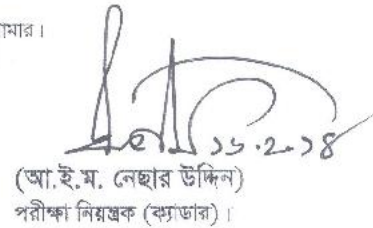 ১৬.২.১৪
(আ.ই.ম. নেছার উদ্দিন)
পরীক্ষা নিয়ন্ত্রক (ক্যাডার)।